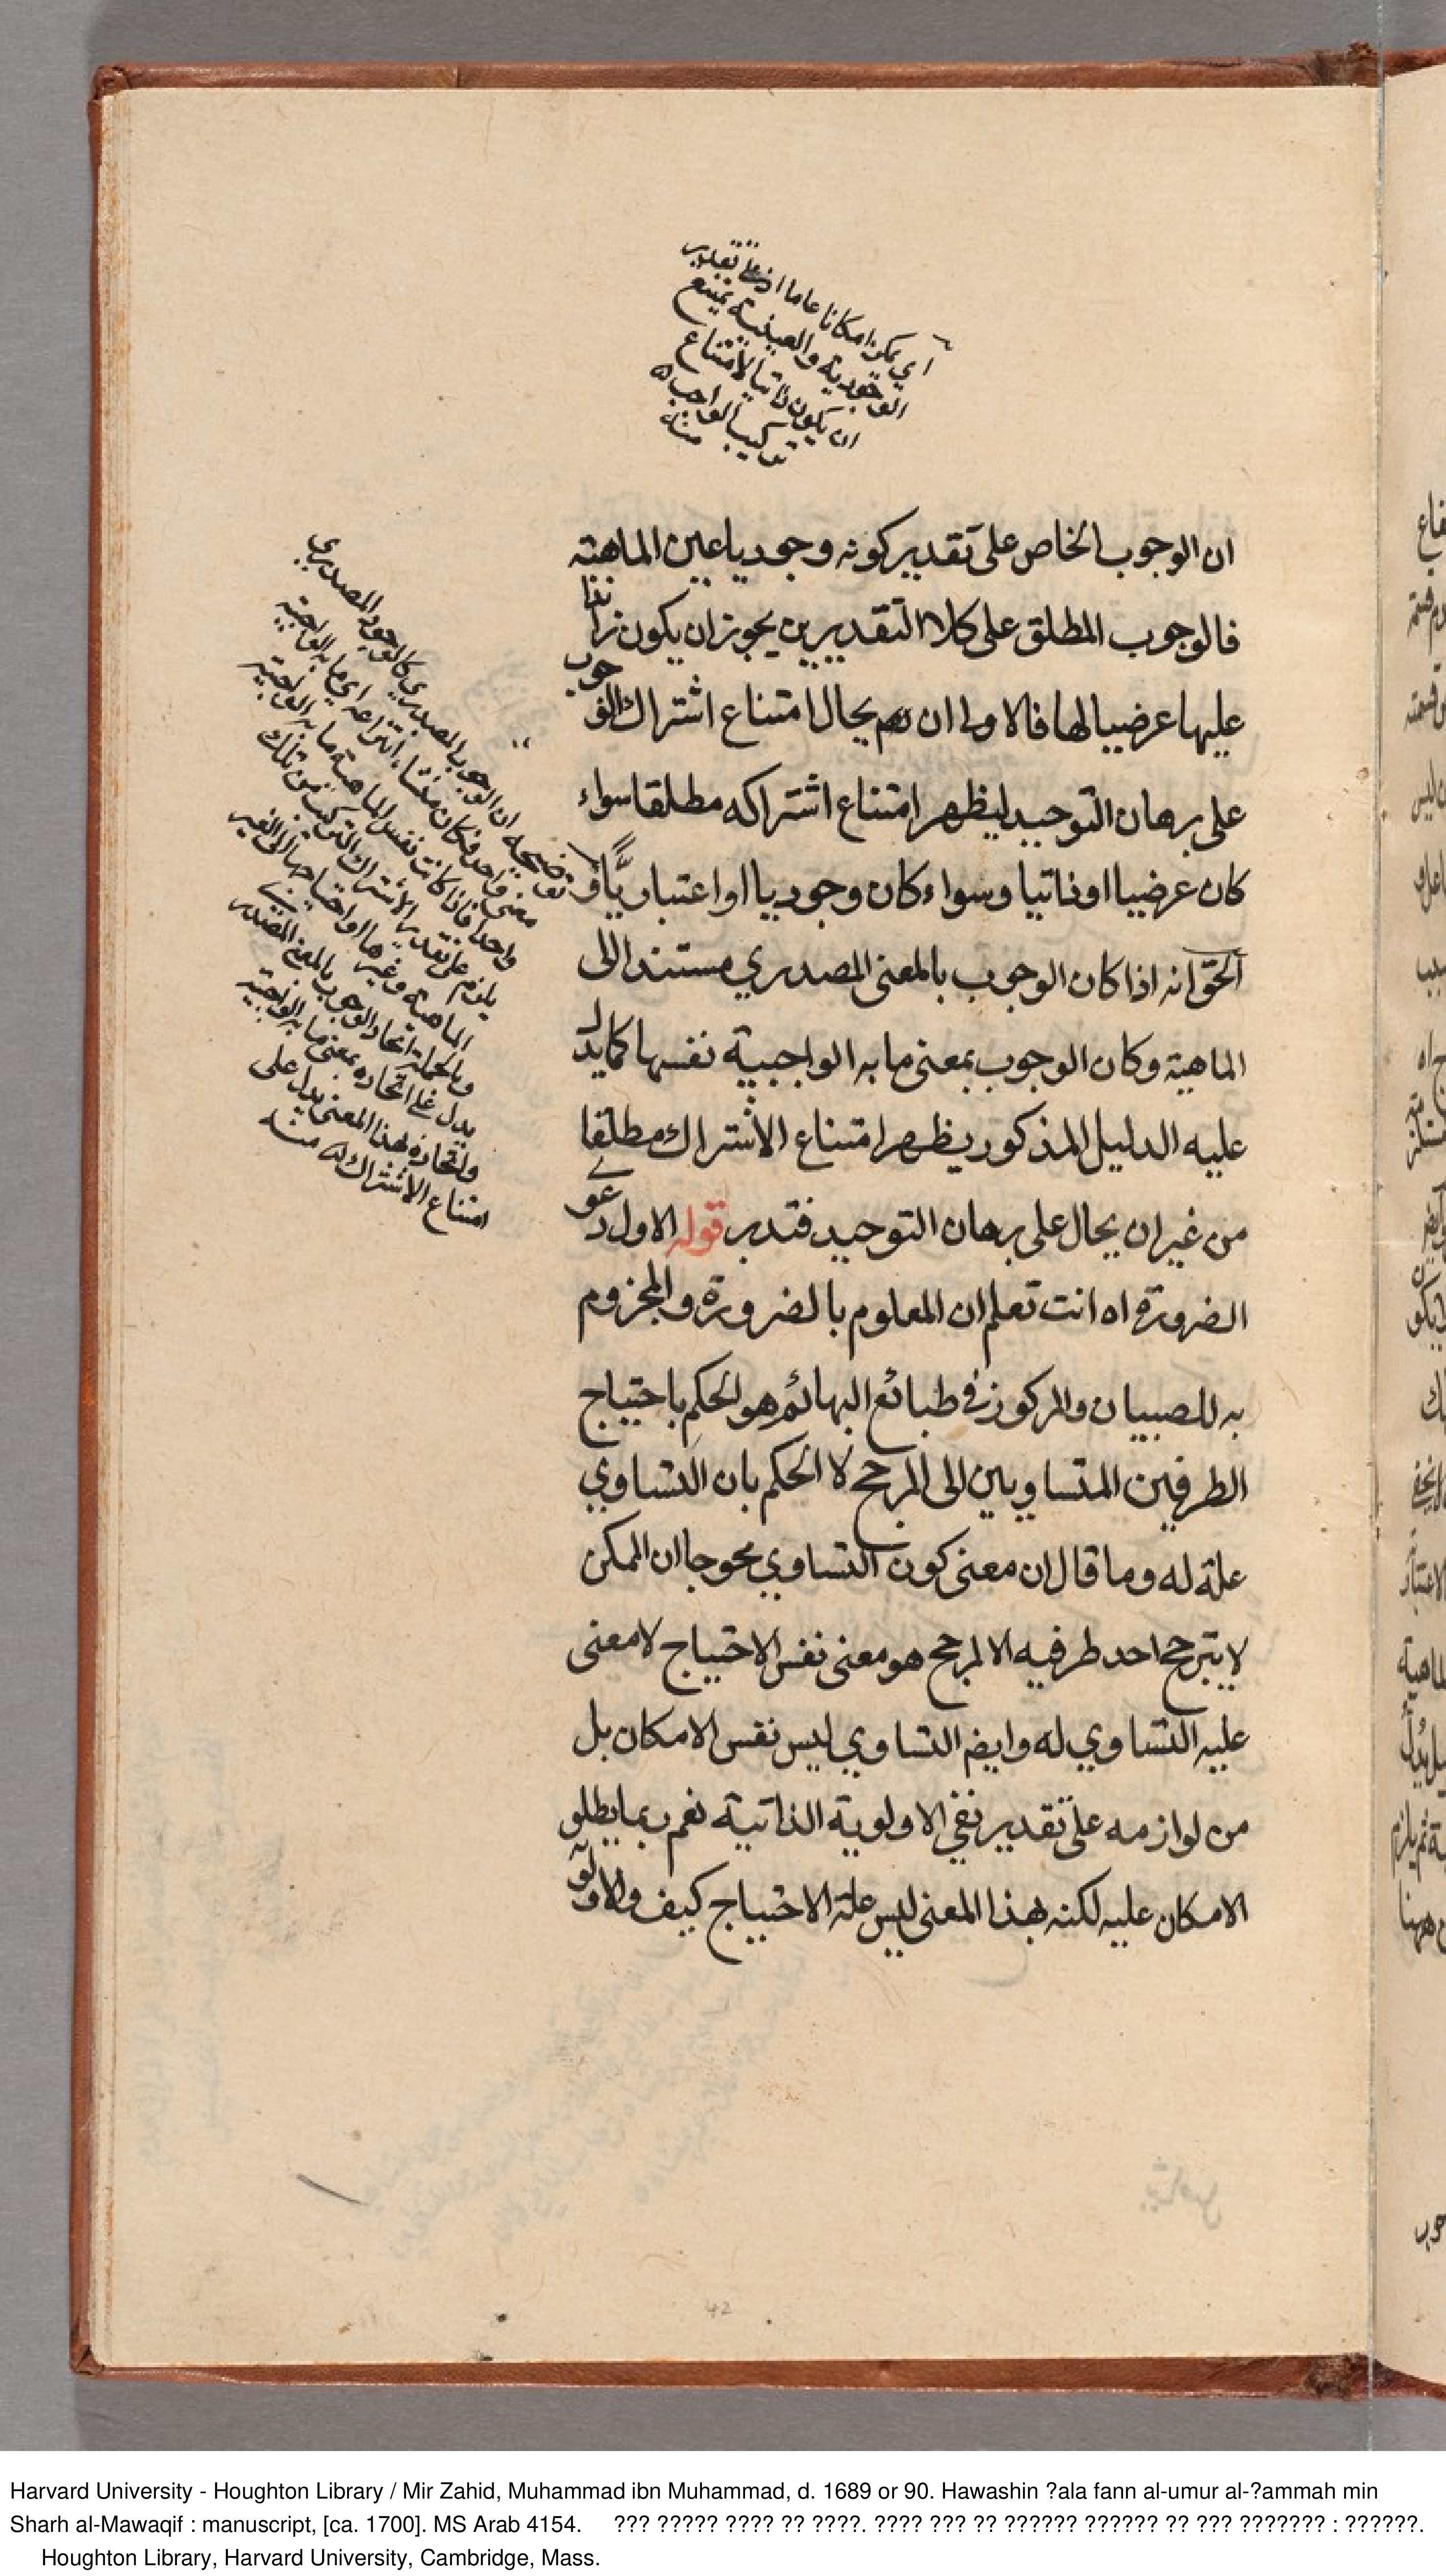 أي يمكن امكانا عاما اذ على تقدير
الوجودية والعينية يمتنع
ان يكون ذاتيا لامتناع
تركيب الواجب
منه
ان الوجوب الخاص على تقدير كونه وجوديا عين الماهية
فالوجوب المطلق على كلا التقديرين يجوز ان يكون زائدا
عليها عرضيا لها فالاولى ان يحال امتناع اشتراك الوجوب
على برهان التوحيد ليظهر امتناع اشتراكه مطلقا سواء
كان عرضيا او ذاتيا وسواء كان وجوديا او اعتباريا و
الحق انه اذا كان الوجوب بالمعنى المصدري مستندا الى
الماهية وكان الوجوب بمعنى ما به الواجبية نفسها كما يدل
عليه الدليل المذكور يظهر امتناع الاشتراك مطلقا
من غير ان يحال على برهان التوحيد فتدبر قوله الاول دعوى
الضرورة اه انت تعلم ان المعلوم بالضرورة والمجزوم
به للصبيان والمركوز في طبائع البهائم هو الحكم باحتياج
الطرفين المتساويين الى المرجح لا الحكم بان التساوي
علة له وما قال ان معنى كون التساوي محوجا ان الممكن
لا يترجح احد طرفيه الا لمرجح هو معنى نفس الاحتياج لا معنى
علية التساوي له وايضم التساوي ليس نفس الامكان بل
من لوازمه على تقدير نفي الاولوية الذاتية نعم ربما يطلق
الامكان عليه لكنه بهذا المعنى ليس علة الاحتياج كيف والاولو
توضيحه ان الوجوب المصدري كالوجود المصدري
معنى واحد فكان منشاء انتزاعه اي ما به الواجبية
واحدا فاذا كانت نفس الماهية ما به الواجبية
يلزم على تقدير الاشتراك التركيب من تلك
الماهية وغيرها او احتياجها الى الغير
وبالجملة اتحاد الوجوب بالمعنى المصدري
يدل على اتحاده بمعنى ما به الواجبية
واتحاده بهذا المعنى يدل على
امتناع الاشتراك منه
42
Harvard University - Houghton Library / Mir Zahid, Muhammad ibn Muhammad, d. 1689 or 90. Hawashin ?ala fann al-umur al-?ammah min
Sharh al-Mawaqif : manuscript, [ca. 1700]. MS Arab 4154. ??? ????? ???? ?? ????. ???? ??? ?? ?????? ?????? ?? ??? ??????? : ??????.
Houghton Library, Harvard University, Cambridge, Mass.